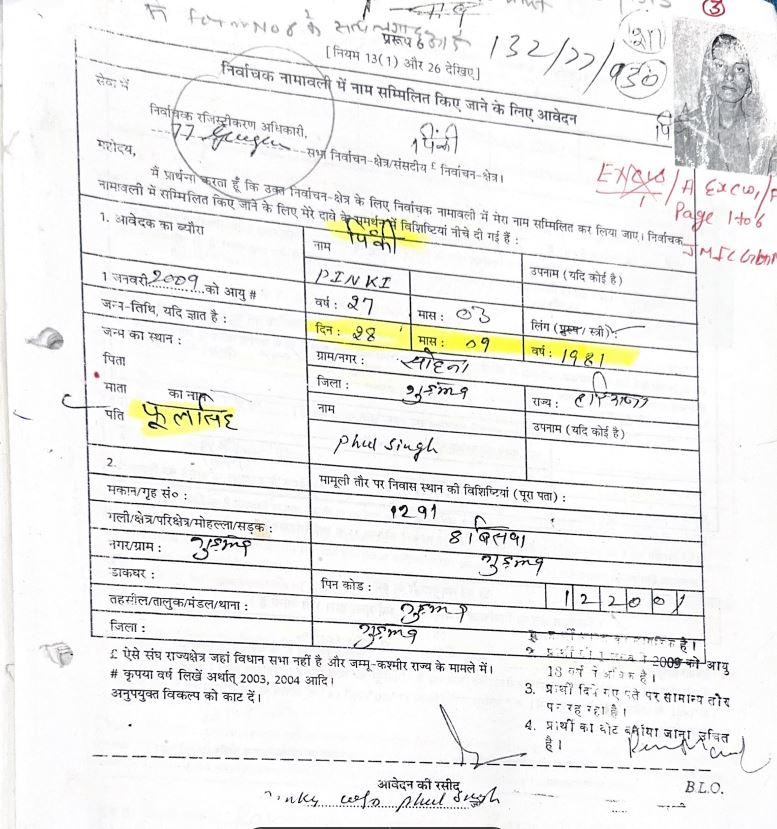 प्ररूप 6
132/77/936
[नियम 13(1) और 26 देखिए]
निर्वाचक नामावली में नाम सम्मिलित किए जाने के लिए आवेदन
सेवा में
निर्वाचक रजिस्ट्रीकरण अधिकारी,
77 सभा निर्वाचन-क्षेत्र/संसदीय £ निर्वाचन-क्षेत्र।
पिंकी
महोदय,
Page 1 to 6
मैं प्रार्थना करता हूँ कि उक्त निर्वाचन-क्षेत्र के लिए निर्वाचक नामावली में मेरा नाम सम्मिलित कर लिया जाए। निर्वाचक
नामावली में सम्मिलित किए जाने के लिए मेरे दावे के समर्थन में विशिष्टियां नीचे दी गई हैं :
1. आवेदक का ब्यौरा
नाम पिंकी
उपनाम (यदि कोई है)
PINKI
1 जनवरी 2009 को आयु #
वर्ष : 27 मास : 03 लिंग (पुरुष/ स्त्री) :
जन्म-तिथि, यदि ज्ञात है :
दिन : 28 मास : 09 वर्ष : 1981
जन्म का स्थान :
ग्राम/नगर : सोहना
जिला : गुड़गांव राज्य : हरियाणा
पिता
माता का नाम
पति फूलसिंह
नाम उपनाम (यदि कोई है)
Phul Singh
2.
मामूली तौर पर निवास स्थान की विशिष्टियां (पूरा पता) :
मकान/गृह सं० : 1291
गली/क्षेत्र/परिक्षेत्र/मोहल्ला/सड़क : 8 बिसवा
नगर/ग्राम : गुड़गांव गुड़गांव
डाकघर : पिन कोड : 122001
तहसील/तालुक/मंडल/थाना : गुड़गांव
जिला : गुड़गांव
£ ऐसे संघ राज्यक्षेत्र जहां विधान सभा नहीं है और जम्मू-कश्मीर राज्य के मामले में।
# कृपया वर्ष लिखें अर्थात् 2003, 2004 आदि।
अनुपयुक्त विकल्प को काट दें।
2009 को आयु
18 वर्ष से अधिक है।
3. प्रार्थी दिये गए पते पर सामान्य तौर
पर रह रहा है।
4. प्रार्थी का वोट बनाया जाना उचित
है।
आवेदन की रसीद
B.L.O.
Pinky w/o Phul Singh